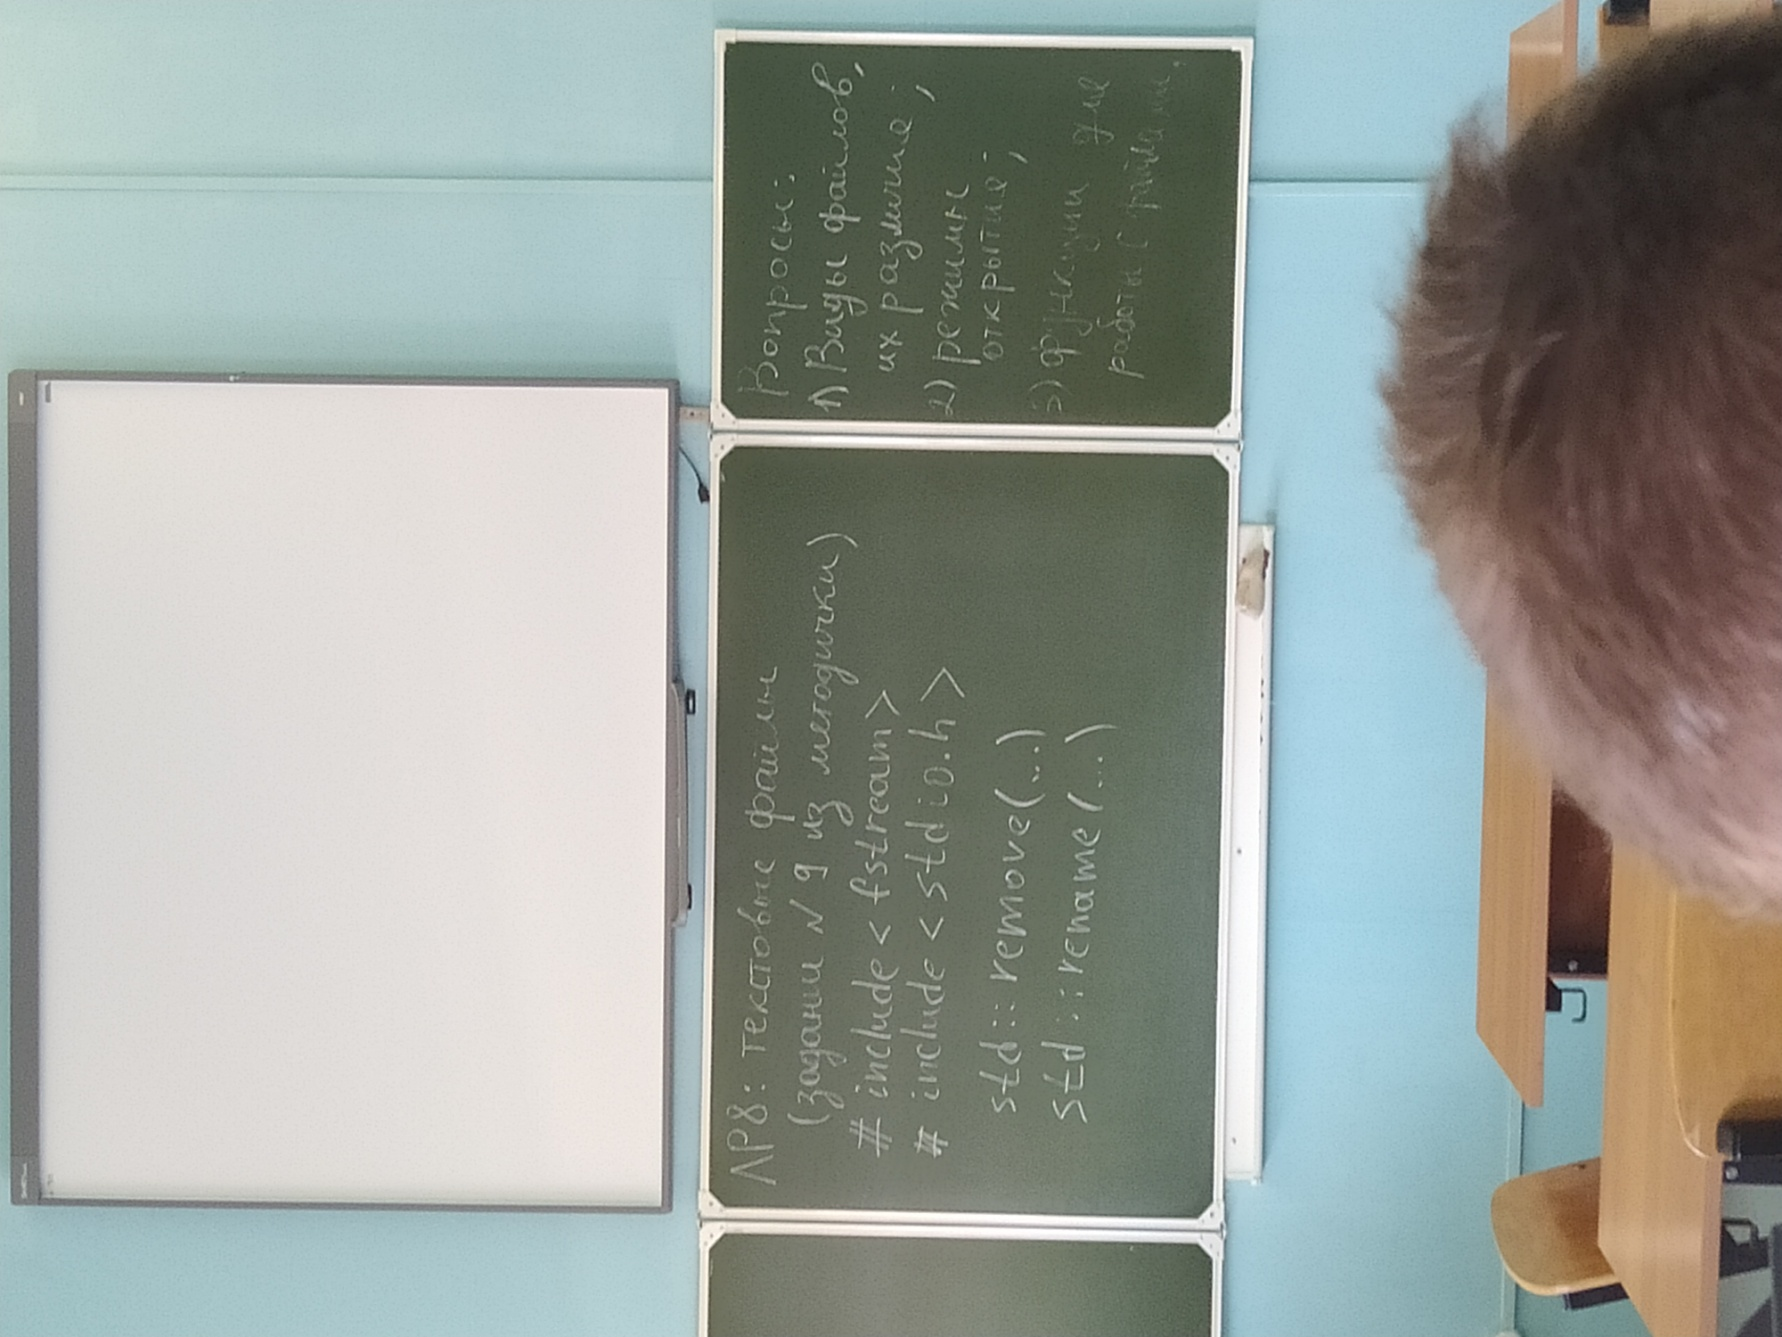 ЛР8: текстовые файлы
(задани № 9 из методички)
# include < fstream >
# include < stdio.h >
std::remove(...)
std::rename(...)
Вопросы:
1) Виды файлов,
их различие;
2) режимы
открытие;
3) функции для
работы с файлами.